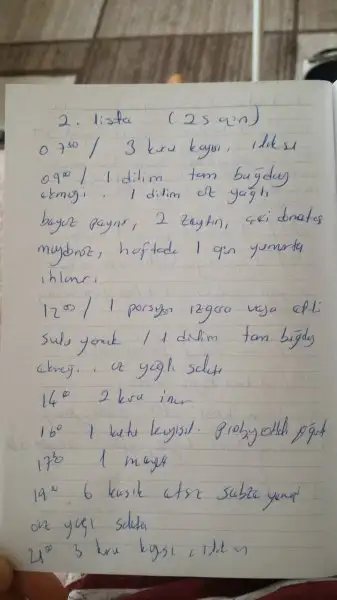 2. lista (25 gün)
07³⁰ / 3 kuru kayısı, ılık su
09⁰⁰ / 1 dilim tam buğday
ekmeği. 1 dilim az yağlı
beyaz peynir, 2 zeytin, domates
maydanoz, haftada 1 gün yumurta
ıhlamur.
12⁰⁰ / 1 porsiyon ızgara veya etli
sulu yemek / 1 dilim tam buğday
ekmeği. az yağlı salata
14⁰⁰ 2 kuru incir
16⁰ 1 kutu probiyotikli yoğurt
17³⁰ 1 meyve
19⁰⁰ 6 kaşık etsiz sebze yemeği
az yağlı salata
21⁰⁰ 3 kuru kayısı, ılık su